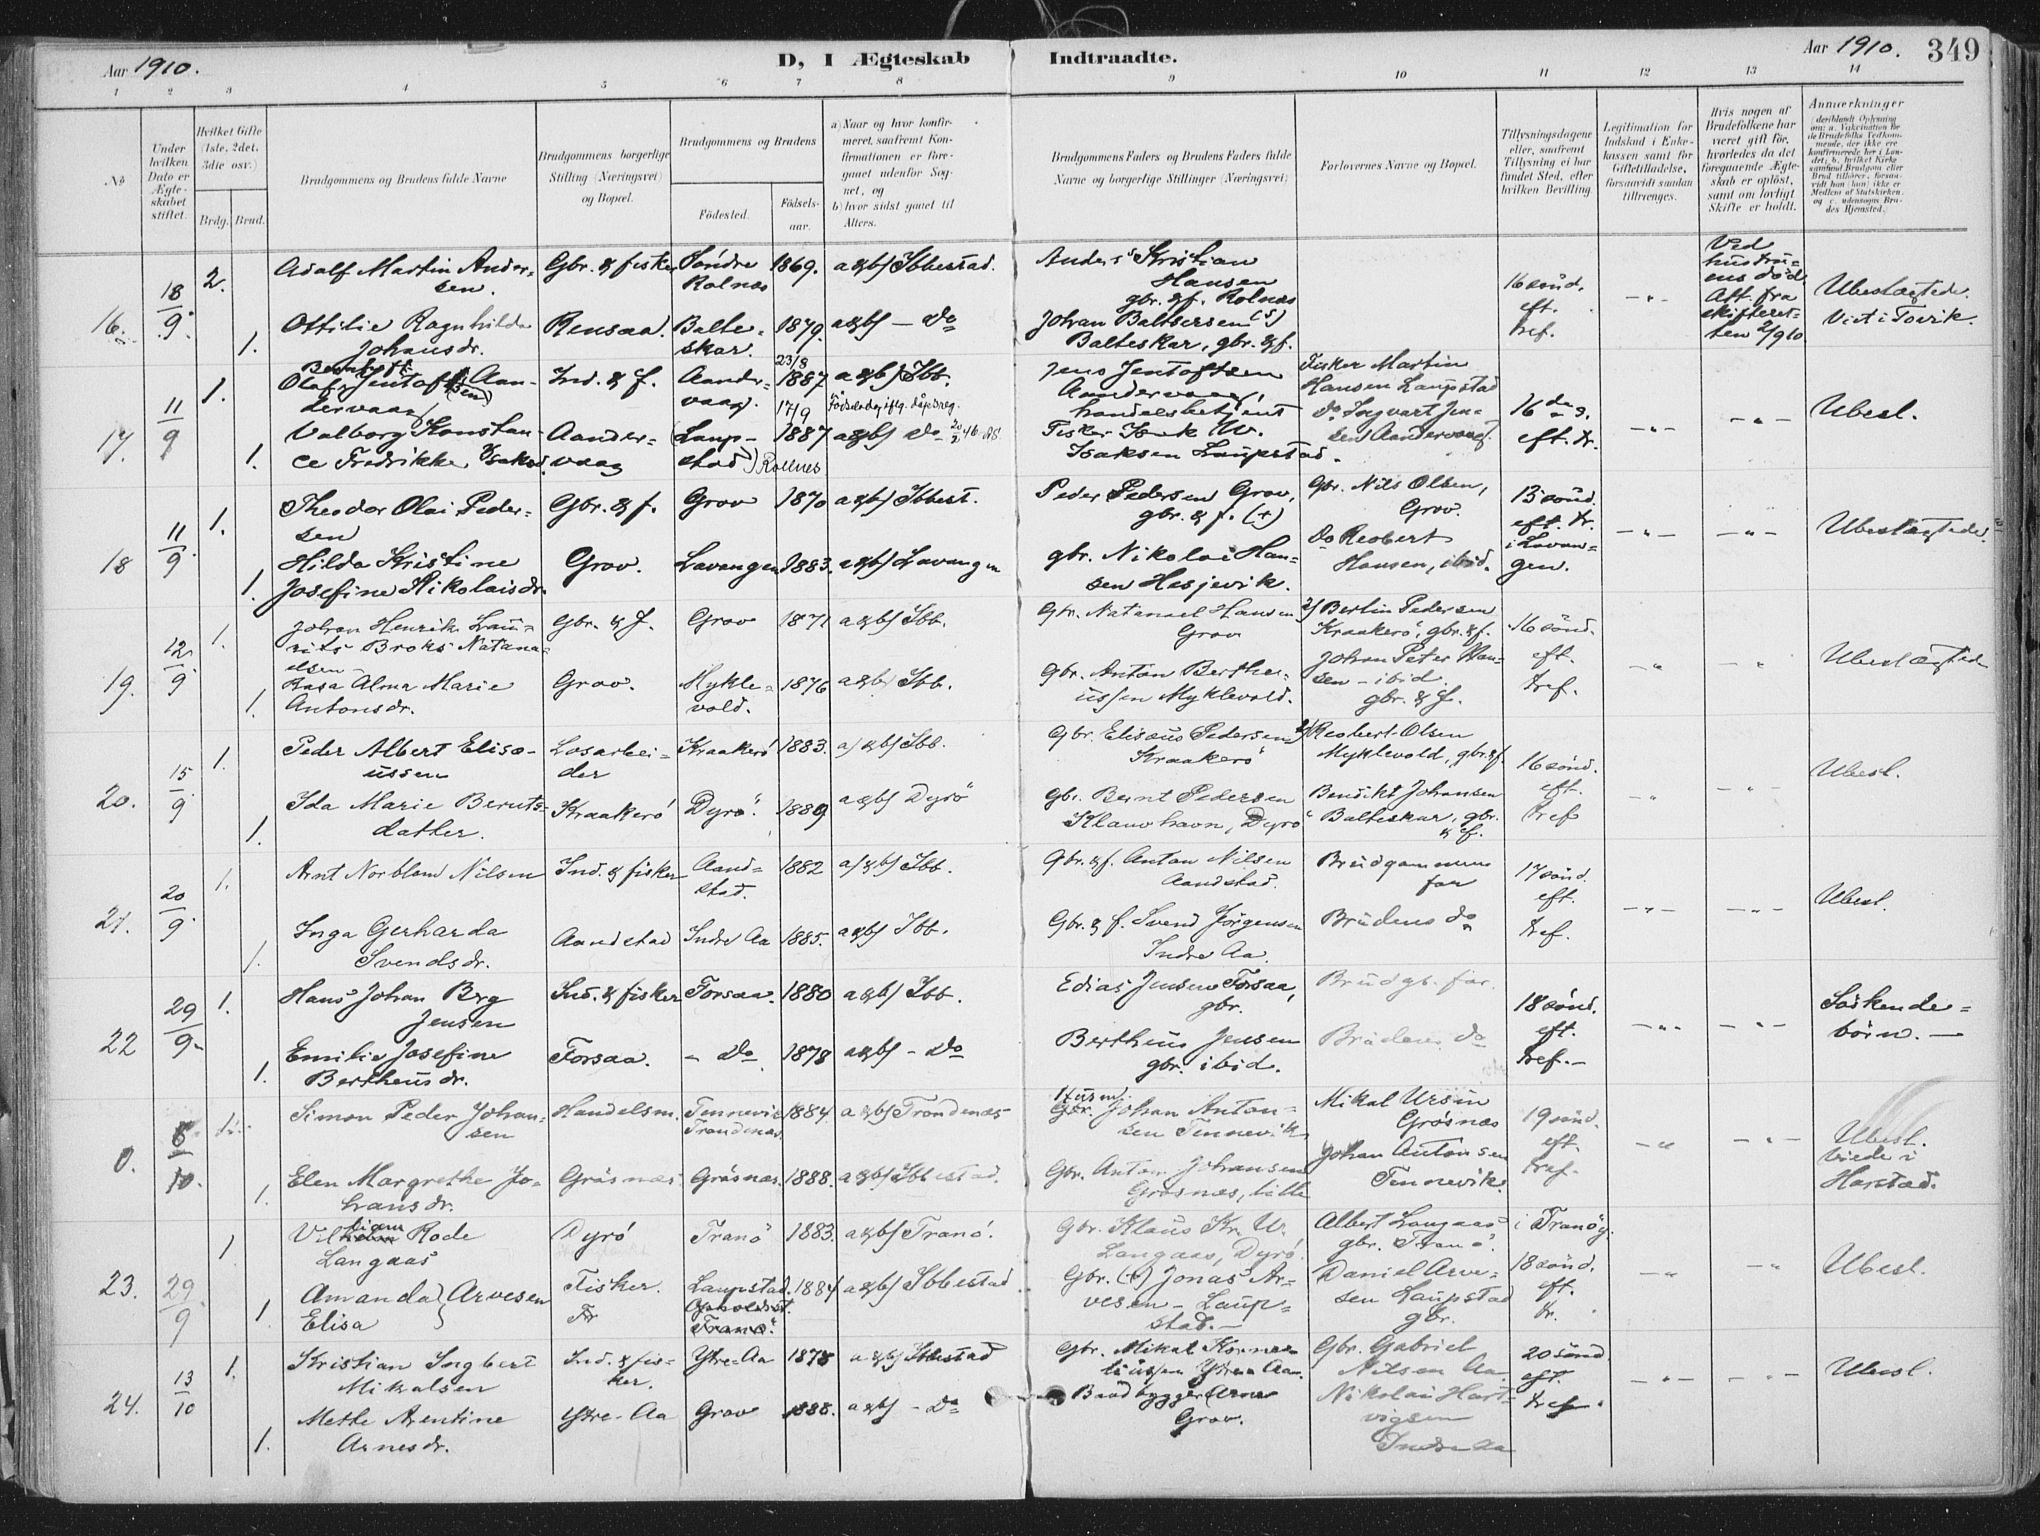 Aar 1910.
D, I Ægteskab Indtraadte.
Aar 1910. 349
1 2 3 4 5 6 7 8 9 10 11 12 13 14
No
Under hvilken Dato er Ægteskabet stiftet.
Hvilket Gifte (1ste, 2det, 3die osv.)
Brdg. Brud.
Brudgommens og Brudens fulde Navne
Brudgommens borgerlige Stilling (Næringsvei) og Bopæl.
Brudgommens og Brudens
Fødested.
Fødsels-aar.
a) Naar og hvor konfirmeret, saafremt Konfirmationen er foregaaet udenfor Sognet, og
b) hvor sidst gaaet til Alters.
Brudgommens Faders og Brudens Faders fulde Navne og borgerlige Stillinger (Næringsvei)
Forlovernes Navne og Bopæl.
Tillysningsdagene eller, saafremt Tillysning ei har fundet Sted, efter hvilken Bevilling.
Legitimation for Indskud i Enkekassen samt for Giftetilladelse, forsaavidt saadan tiltrænges.
Hvis nogen af Brudefolkene har været gift før, hvorledes da det foregaaende Ægteskab er opløst, samt om lovligt Skifte er holdt.
Anmærkninger
(deriblandt Oplysning om: a. Vakcination for de Brudefolks Vedkommende, der ikke ere konfirmerede her i Landet; b. hvilket Kirkesamfund Brudgom eller Brud tilhører, forsaavidt han (hun) ikke er Medlem af Statskirken, og c. udensogns Brudes Hjemsted.
16. 18/9. 2. Adolf Martin Andersen. Gbr. & fisker Søndre Rolnæs 1869. a & b) Ibbestad. Anders Kristian Hansen gbr. & f. Rolnæs 16 sønd. eft. tref. - " - Ved hustruens død Att. fra skifteretten 2/9 10 Ubeslægtede. Viet i Tovik.
1. Ottilie Ragnhilda Johansdr. Rensaa. Balteskar. 1879. a & b) - do Johan Baltsersen (s) Balteskar, gbr. & f.
17. 11/9 1. Olaf Berntzt Jentoft (sen) Aandervaag Ind. & f. Aandervaag. 23/8 1887 a & b) Ibb. Jens Jentoftsen Aandervaag, handelsbetjent Fisker Martin Hansen Laupstad 16 do s. eft. tr. - " - - " - Ubesl.
1. Valborg Konstance Fredrikke Isaksd. Aandervaag (Laupstad) Rollnes 17/9 1887 Fødselsdag iflg. dåpsreg. a & b) do Fisker Isak W. Isaksen Laupstad. Do Ingvart Jensen Aandervaag.
18 11/9. 1. Theodor Olai Pedersen Gbr. & f. Grov 1870 a & b) Ibbest. Peder Pedersen Grov, gbr. & f. (+) Gbr. Nils Olsen, Grov. 15 sønd. eft. tr. i Lavangen. - " - - " - Ubeslægtede.
1. Hilda Kristine Josefine Nikolaisdr. Grov. Lavangen 1883. a & b) Lavangen gbr. Nikolai Hansen Hesjevik. Do Reobert Hansen, ibid.
19. 12/9. 1. Johan Henrik Lauritz Broks Natanaelsen Gbr. & f. Grov 1871 a & b) Ibb. Gbr. Natanael Hansen Grov Bertin Pedersen Kraakerø, gbr. & f. 16 sønd. eft. tref. - " - " Ubeslægtede
1. Rasa Alma Marie Antonsdr. Grov. Myklevold. 1876 a & b) Ibb. Gbr. Anton Bertheussen Myklevold. Johan Peter Hansen - ibid. gbr. & f.
20. 15/9. 1. Peder Albert Elisæussen Løsarbeider Kraakerø 1883. a) & b) Ibb. Gbr. Elisæus Pedersen Kraakerø Reobert Olsen Myklevold, gbr. & f. 16 sønd. eft. tref - " - " - Ubesl.
1. Ida Marie Berntsdatter. Kraakerø Dyrø. 1889 a & b) Dyrø gbr. Bernt Pedersen Klauvhavn, Dyrø Benedikt Johansen Balteskar, gbr. & f.
21. 20/9. 1. Arnt Norbland Nilsen Ind. & fisker Aandstad. 1882 a) & b) Ibb. Gbr. & f. Anton Nilsen Aandstad. Brudgommens far 17 sønd. eft. tref. - " - - " - Ubesl.
1. Inga Gerharda Svendsdr. Aandstad Indre Aa 1885. a & b) Ibb. Gbr. & f. Svend Jørgensen Indre Aa. Brudens do
22 29/9 1. Hans Johan Berg Jensen Ind. & fisker Forsaa. 1880 a & b) Ibb. Edias Jensen Forsaa, gbr. Brudgs. far. 18 sønd. eft. tref. - " - - " - Søskendebørn. -
1. Emilie Josefine Bertheusdr. Forsaa. - do 1878 a & b) - do Bertheus Jensen gbr. ibid. Brudens do
0. 6/10. 1. Simon Peder Johansen Handelsm. Tennevik Trondenæs 1884. a & b) Trondenæs Husm. Gbr. Johan Antonsen Tennevik Mikal Ursin Grøsnæs 19 sønd. eft. tref. - " - " - Ubesl. Viede i Harstad.
1. Elen Margrethe Johansdr. Grøsnæs Grøsnæs 1888. a & b) Ibbestad. Gbr. Anton Johansen Grøsnæs, lille Johan Antonsen Tennevik.
23. 29/9 1 Villiam Rode Langaas Dyrø Tranø 1883. a & b) Tranø. Gbr. Klaus Kr. W. Langaas, Dyrø. Albert Langaas gbr. Tranø. i Tranøy. 18 sønd. eft. tr. - " - " Ubesl.
1 Amanda Elisa } Arvesen Fisker. Laupstad. 1884 a & b) Ibbestad Gbr. (+) Jonas Arvesen - Laupstad. - Daniel Arvesen Laupstad gbr.
24. 13/10 1. Kristian Ingbert Mikalsen Ind. & fisker. Ytre-Aa 1878 a & b) Ibbestad Gbr. Mikal Korneliussen Ytre-Aa. Gbr. Gabriel Nilsen Aa 20 sønd. eft. tref. - " - - " - Ubesl.
1. Methe Arentine Arnesdr. Ytre-Aa Grov 1888. a & b) - do Baadbygger Arne Grov. Nikolai Hartvigsen Indre Aa